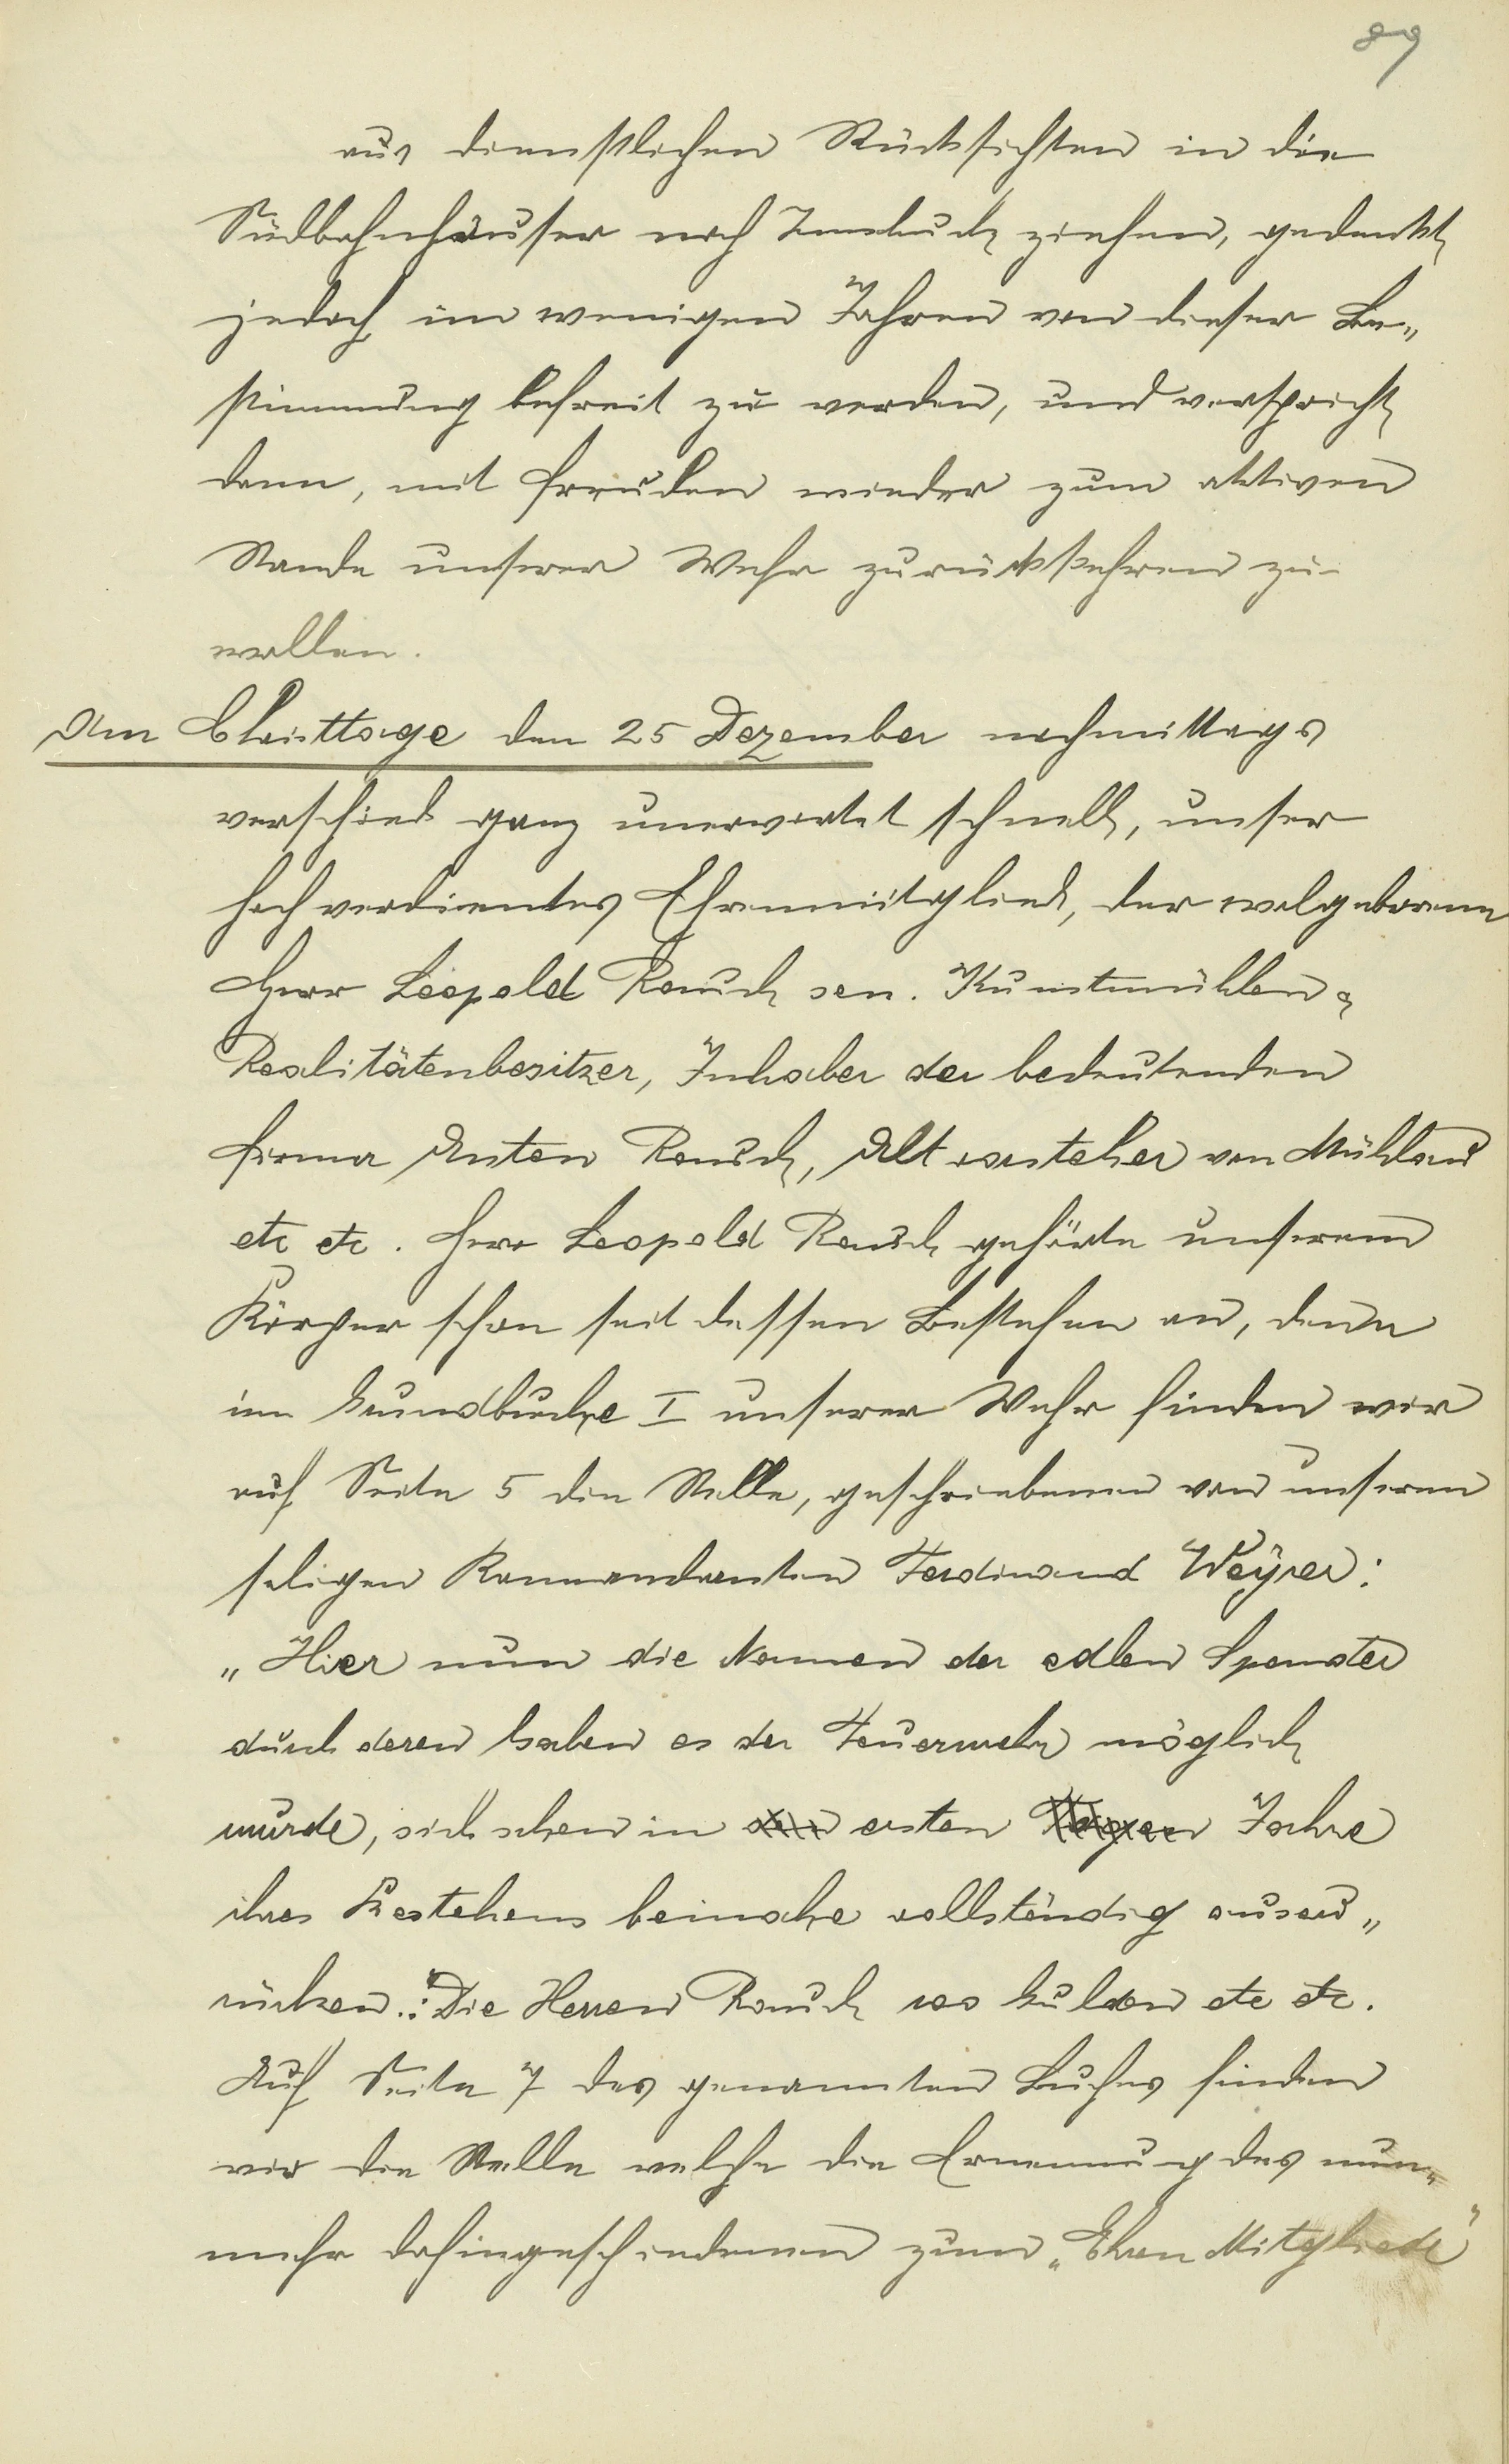 89
aus dienstlichen Rücksichten in die
Südbahnhäuser nach Innsbruck ziehen, gedenkt
jedoch in wenigen Jahren von dieser Be„
stimmung befreit zu werden, und verspricht
dann, mit Freuden wieder zum aktiven
Stande unserer Wehr zurückkehren zu
wollen.
Am Christtage den 25 Dezember nachmittags
verschied ganz unerwartet schnell, unser
hochverdientes Ehrenmitglied, der wolgeborene
Herr Leopold Rauch sen. Kunstmühlen &
Realitätenbesitzer, Inhaber der bedeutenden
Firma Anton Rauch, Altvorsteher von Mühlau
etc etc. Herr Leopold Rauch gehörte unserem
Körper schon seit dessen Bestehen an, denn
im Grundbuche I unserer Wehr finden wir
auf Seite 5 die Stelle, geschriebenen von unserem
seligen Kommandanten Ferdinand Weyrer:
„Hier nun die Namen der edlen Spender
durch deren Gaben es der Feuerwehr möglich
wurde, sich schon in den ersten Tagen Jahre
ihres Bestehens beinahe vollständig auszu„
rücken.: Die Herren Rauch 100 Gulden etc etc.
Auf Seite 7 des genannten Buches finden
wir die Stelle welche die Ernennung des nun„
mehr dahingeschiedenen zum „Ehren Mitgliede"